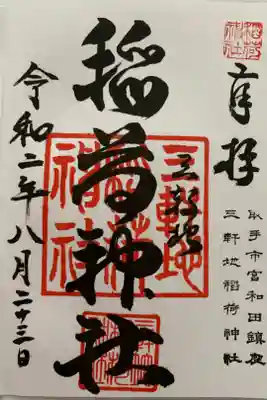 奉拝
取手市宮和田鎮座
三軒地稲荷神社
三軒地
稲荷神社
令和二年八月二十三日
三軒地